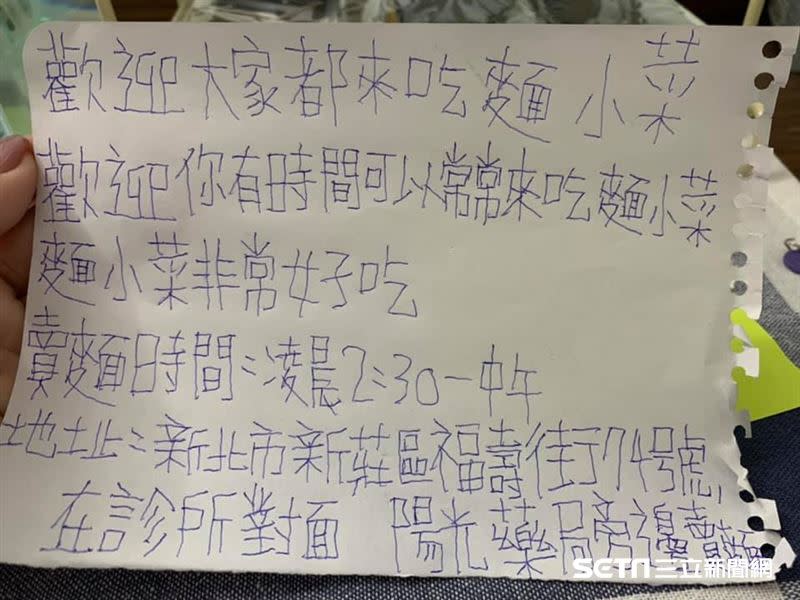 歡迎大家都來吃麵 小菜
歡迎你有時間可以常常來吃麵小菜
麵小菜非常好吃
賣麵時間:凌晨2:30-中午
地址:新北市新莊區福壽街74號,
在診所對面 陽光藥局旁邊賣麵
SETN三立新聞網